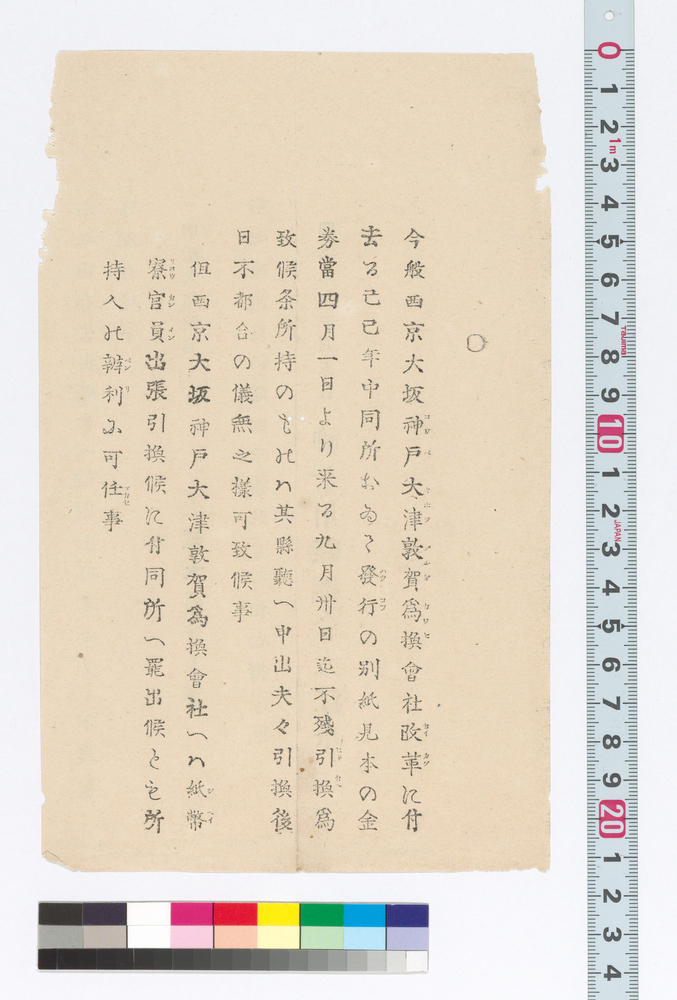 〇
今般西京大坂神戸大津敦賀為換會社改革に付
去る己巳年中同所おゐて發行の別紙見本の金
券當四月一日より来る九月卅日迄不殘引換為
致候条所持のものハ其縣聽へ申出夫々引換後
日不都合の儀無之様可致候事
但西京大坂神戸大津敦賀為換會社へハ紙幣
寮官員出張引換候に付同所へ罷出候とも所
持人の辨利に可任事
0 1 2 3 4 5 6 7 8 9 10 1 2 3 4 5 6 7 8 9 20 1 2 3 4
1m
Tajima
JAPAN